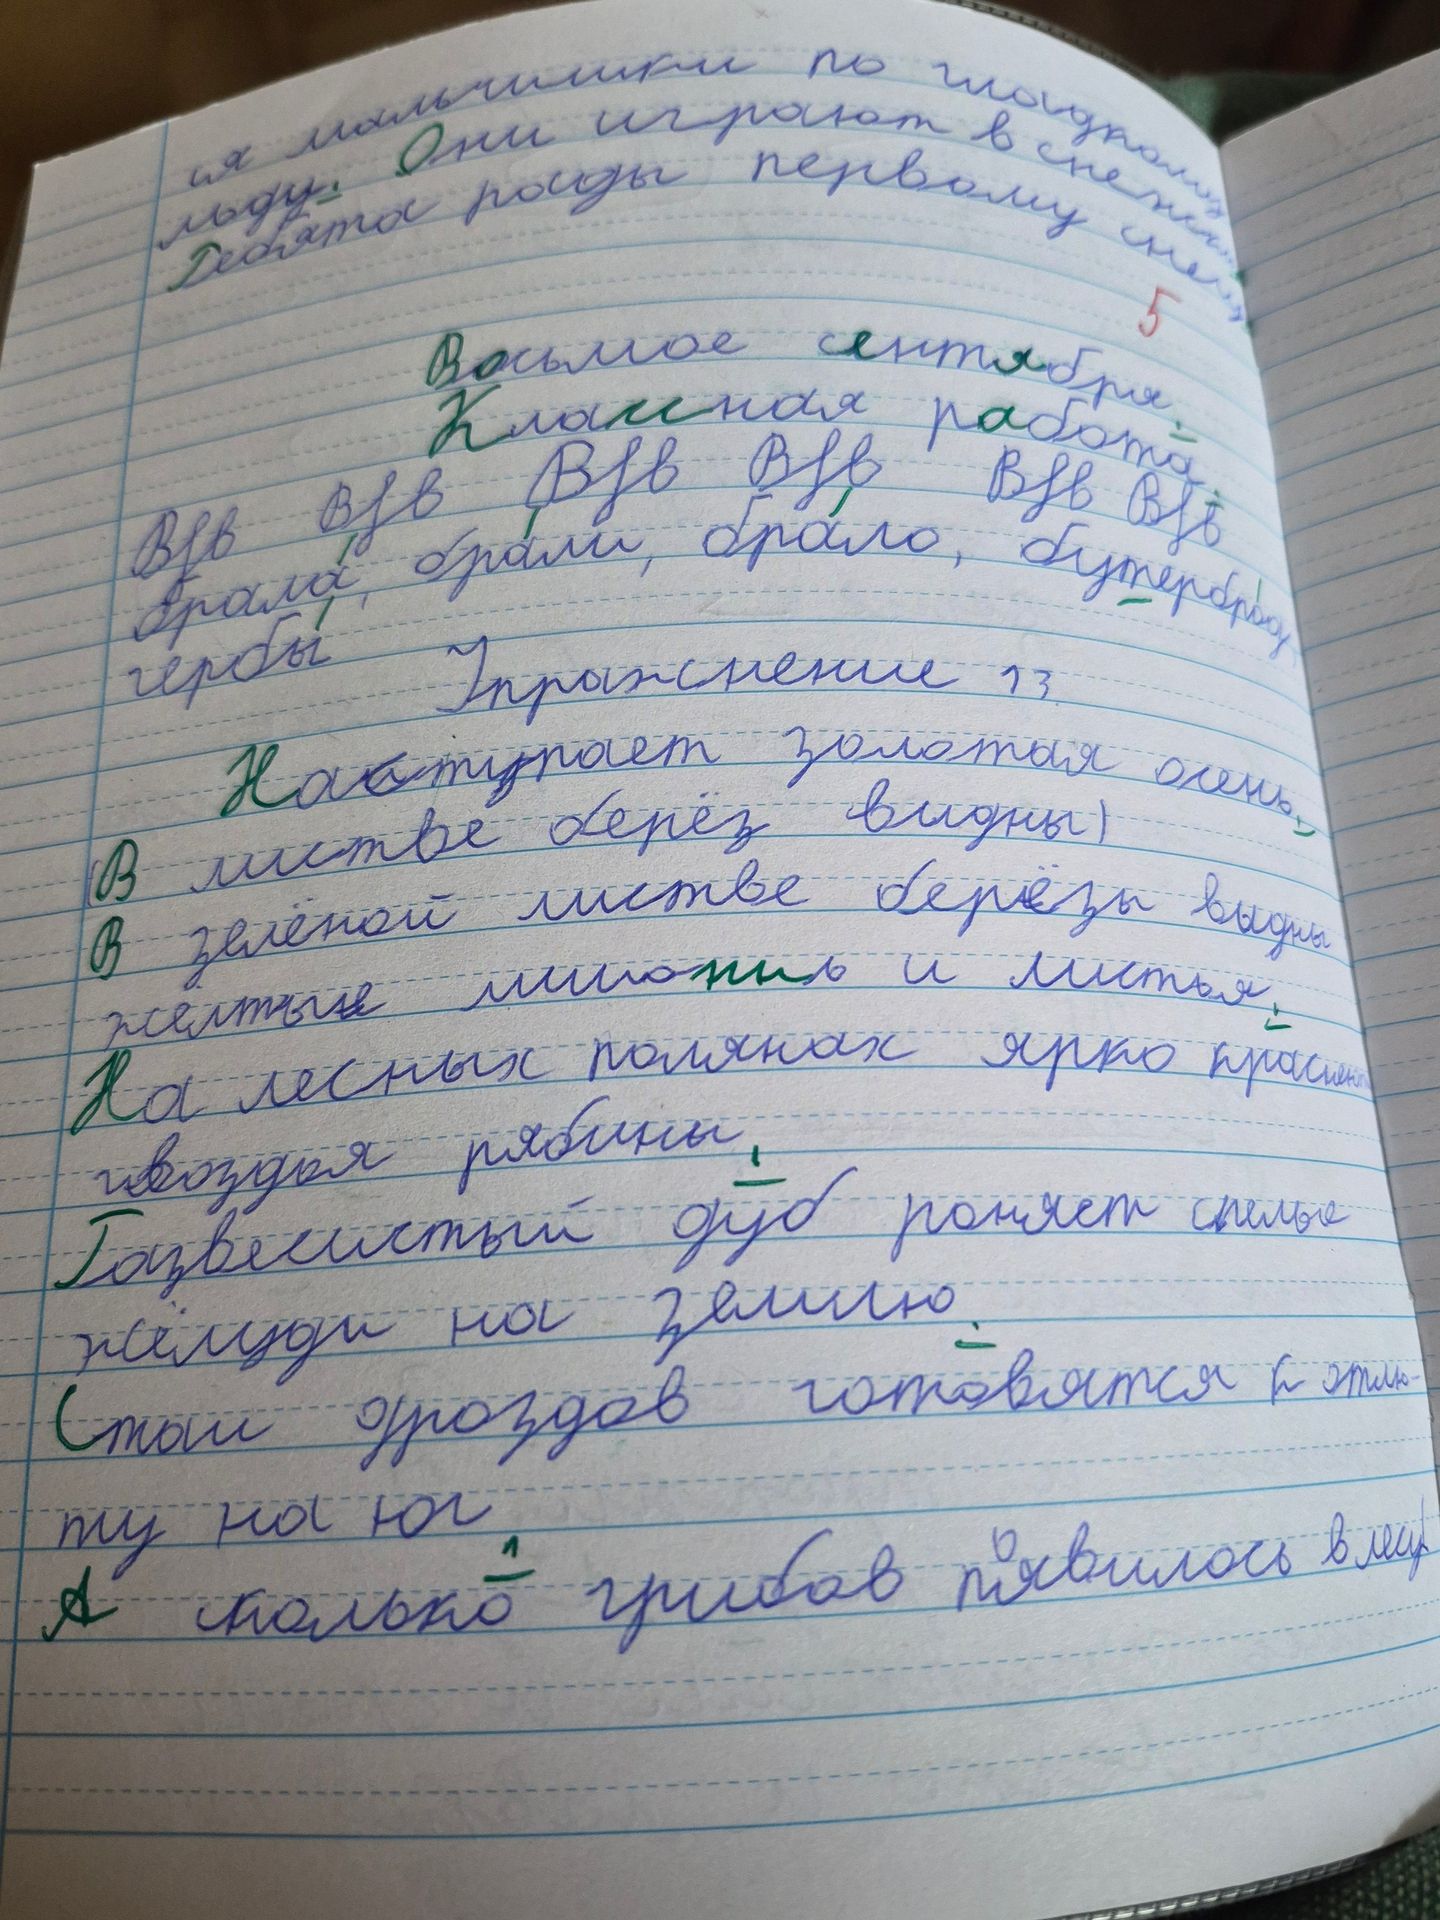 ся мальчишки по гладкому
льду. Они играют в снежки.
Ребята рады первому снегу.
5
Восьмое сентября.
Классная работа.
Вβв Вβв Вβв Вβв Вβв Вβв
брала́, бра́ли, бра́ло, бутербро́д,
гербы́
Упражнение 13
Наступает золотая осень.
(В листве берёз видны)
В зелёной листве берёзы видны
жёлтые лишонкь и листья.
На лесных полянах ярко краснеют
гвоздья рябины.
Развесистый дуб роняет спелые
жёлуди на землю.
Стаи дроздов готовятся к отлё-
ту на юг.
А сколько грибов появилось в лесу!